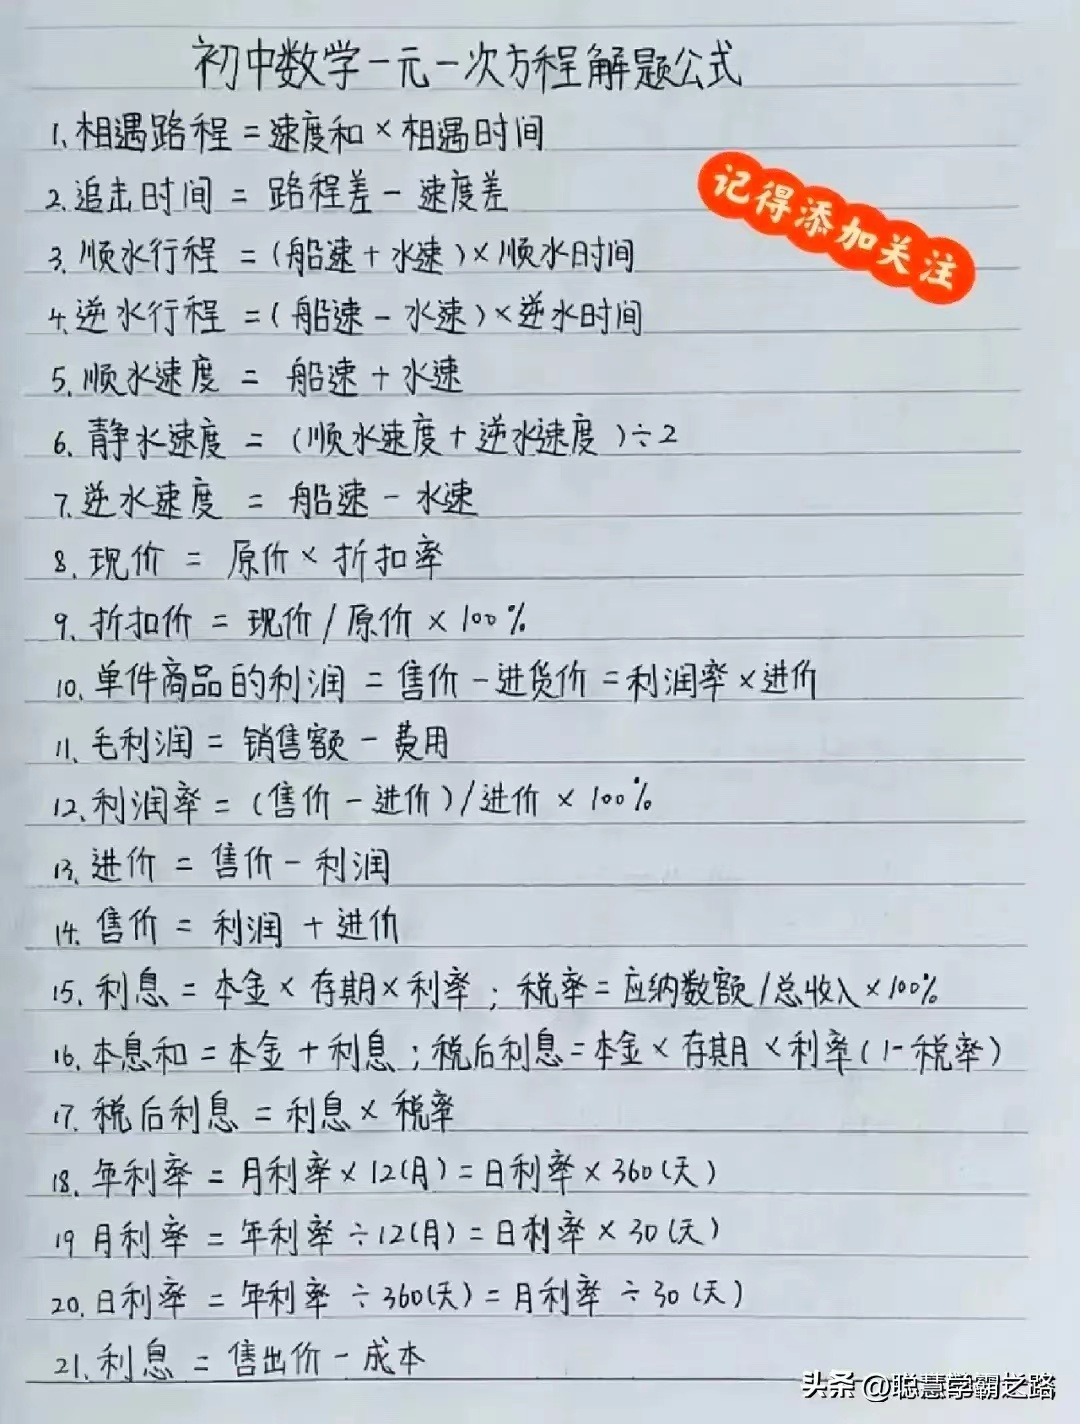 初中数学一元一次方程解题公式
1.相遇路程=速度和×相遇时间
2.追击时间=路程差-速度差
记得添加关注
3.顺水行程=(船速+水速)×顺水时间
4.逆水行程=(船速-水速)×逆水时间
5.顺水速度=船速+水速
6.静水速度=(顺水速度+逆水速度)÷2
7.逆水速度=船速-水速
8.现价=原价×折扣率
9.折扣价=现价/原价×100%
10.单件商品的利润=售价-进货价=利润率×进价
11.毛利润=销售额-费用
12.利润率=(售价-进价)/进价×100%
13.进价=售价-利润
14.售价=利润+进价
15.利息=本金×存期×利率;税率=应纳数额/总收入×100%
16.本息和=本金+利息;税后利息=本金×存期×利率(1-税率)
17.税后利息=利息×税率
18.年利率=月利率×12(月)=日利率×360(天)
19月利率=年利率÷12(月)=日利率×30(天)
20.日利率=年利率÷360(天)=月利率÷30(天)
21.利息=售出价-成本
头条@聪慧学霸之路